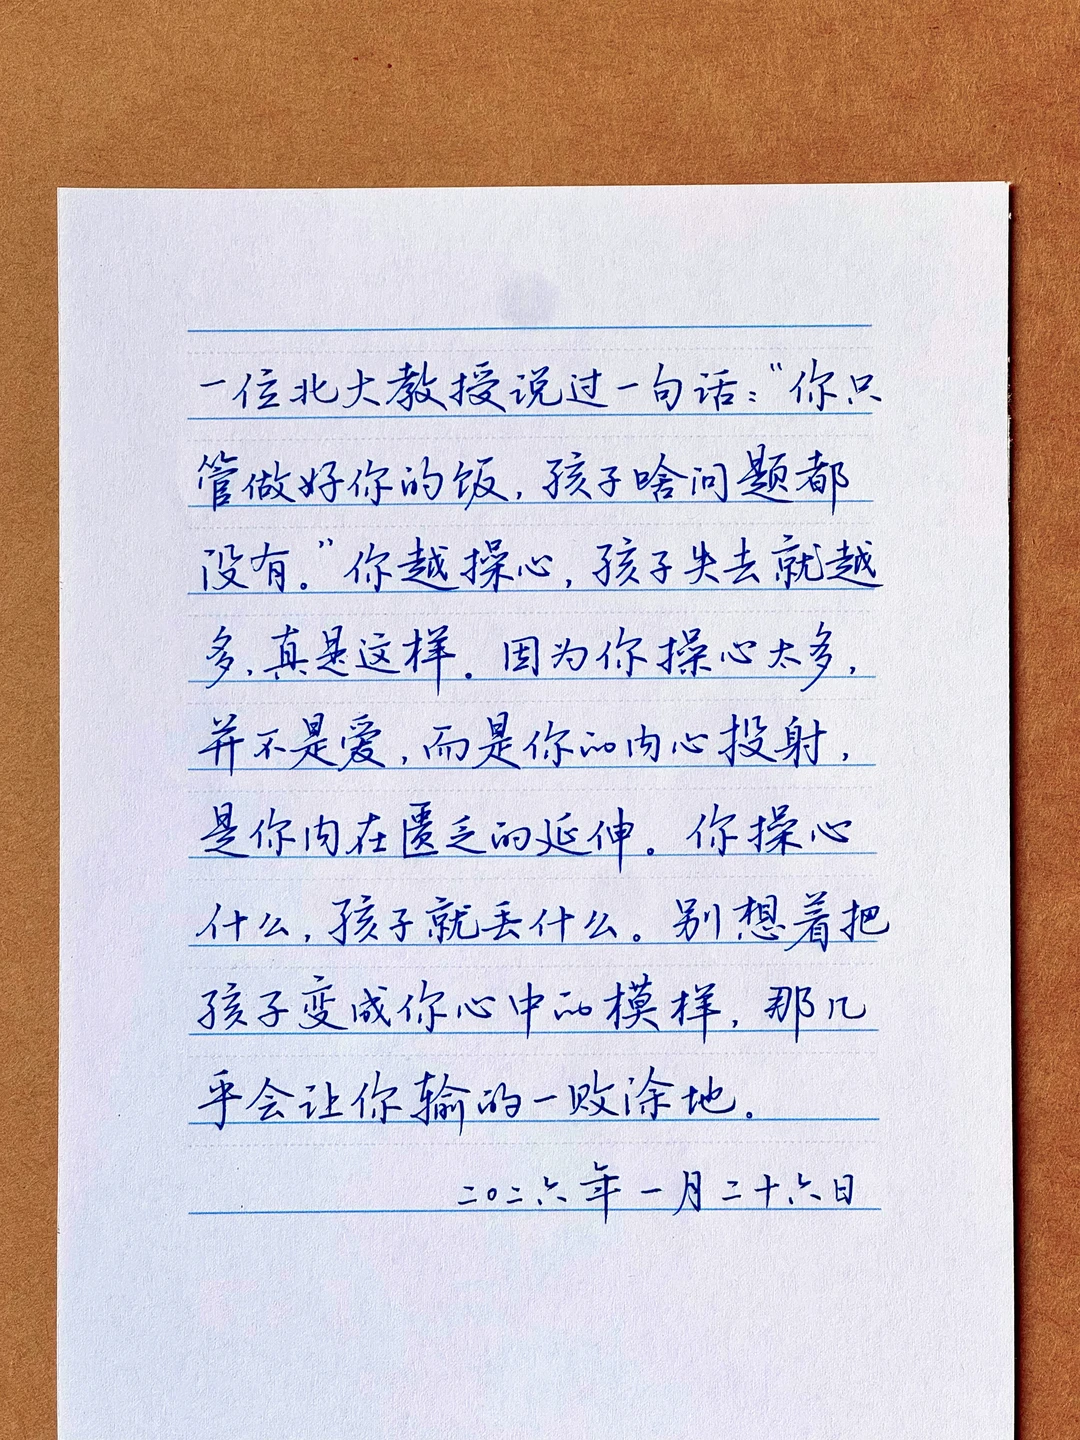 一位北大教授说过一句话：“你只
管做好你的饭，孩子啥问题都
没有。”你越操心，孩子失去就越
多，真是这样。因为你操心太多，
并不是爱，而是你的内心投射，
是你内在匮乏的延伸。你操心
什么，孩子就丢什么。别想着把
孩子变成你心中的模样，那几
乎会让你输的一败涂地。
二〇二六年一月二十六日